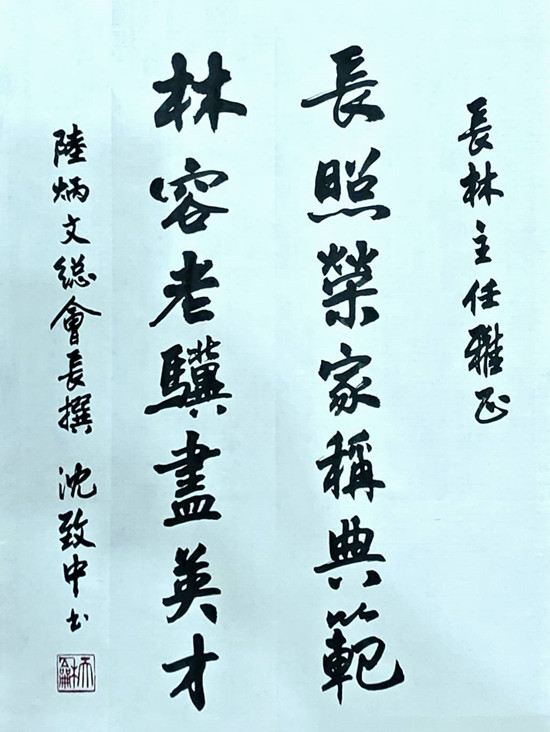 長林主任雅正
長照榮家稱典範
林容老驥盡英才
陸炳文總會長撰 沈致中書